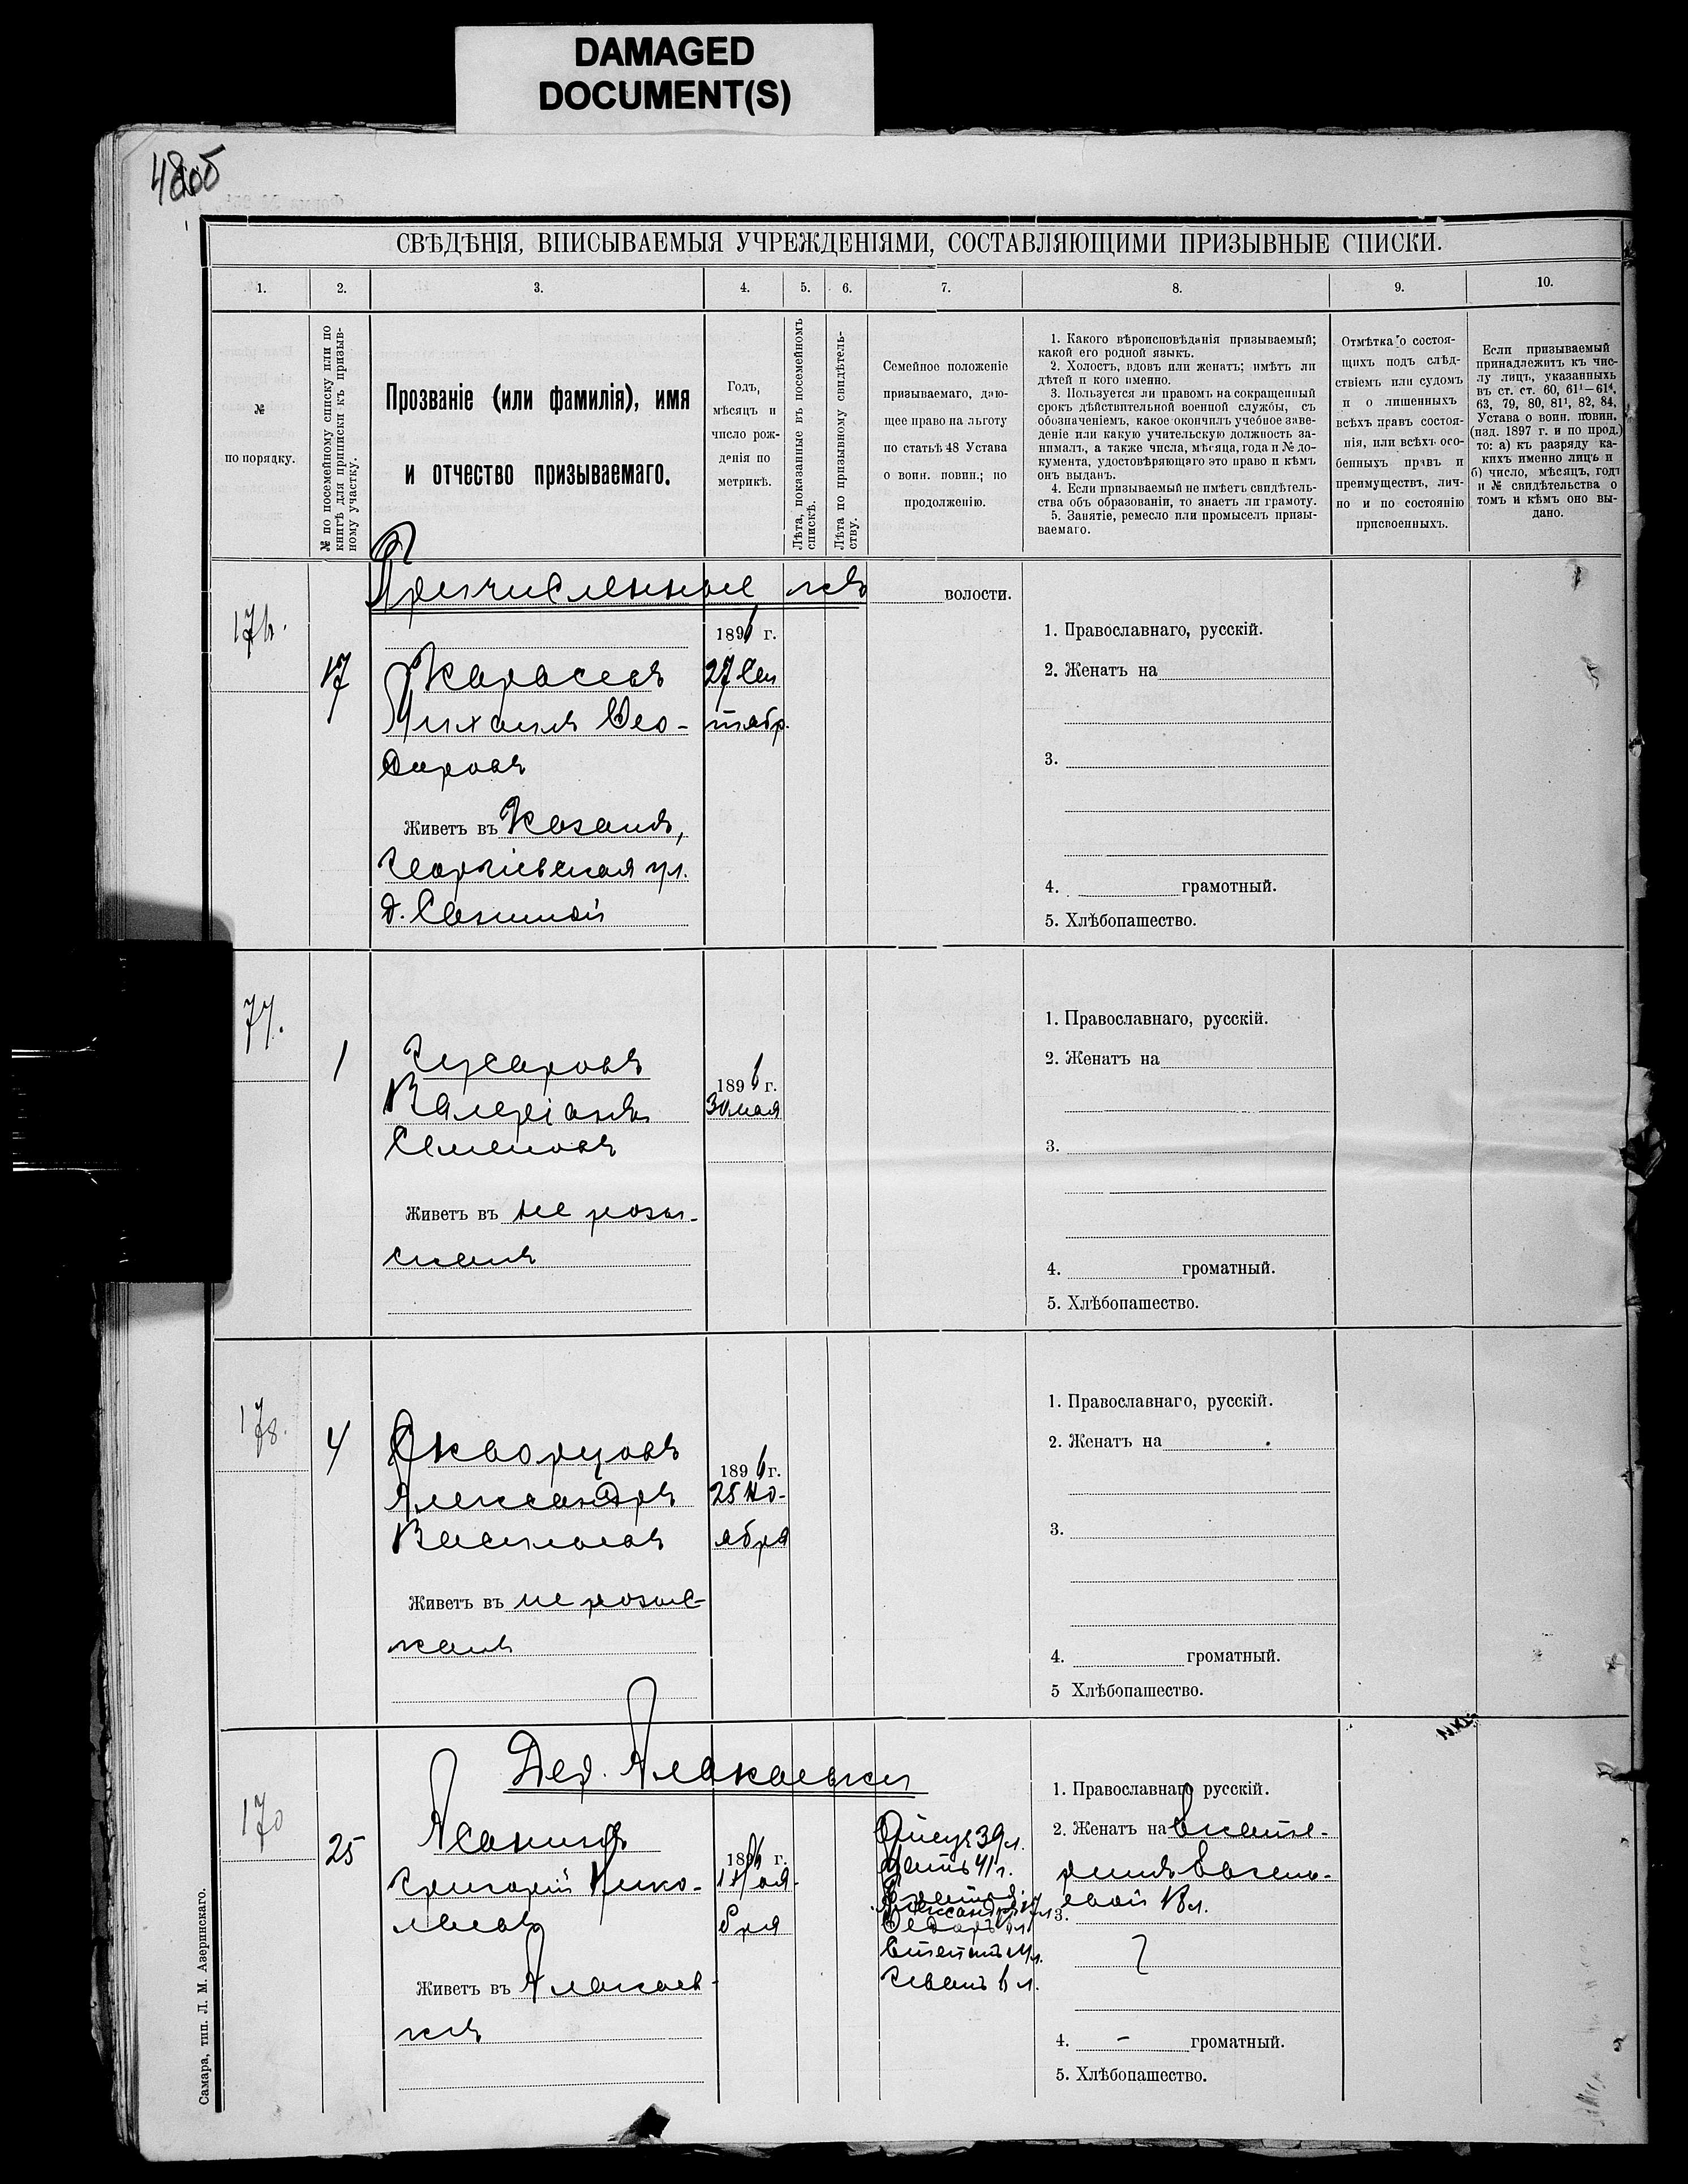 DAMAGED
DOCUMENT(S)
48об
СВѢДѢНІЯ, ВПИСЫВАЕМЫЯ УЧРЕЖДЕНІЯМИ, СОСТАВЛЯЮЩИМИ ПРИЗЫВНЫЕ СПИСКИ.
1. 2. 3. 4. 5. 6. 7. 8. 9. 10.
№
по порядку.
№ по посемейному списку или по
книгѣ для приписки къ призыв-
ному участку.
Прозваніе (или фамилія), имя
и отчество призываемаго.
Годъ,
мѣсяцъ и
число рож-
денія по
метрикѣ.
Лѣта, показанные въ посемейномъ
спискѣ.
Лѣта по призывному свидѣтель-
ству.
Семейное положеніе
призываемаго, даю-
щее право на льготу
по статьѣ 48 Устава
о воин. повин.; по
продолженію.
1. Какого вѣроисповѣданія призываемый;
какой его родной языкъ.
2. Холостъ, вдовъ или женатъ; имѣтъ ли
дѣтей и кого именно.
3. Пользуется ли правомъ на сокращенный
срокъ дѣйствительной военной службы, съ
обозначеніемъ, какое окончилъ учебное заве-
деніе или какую учительскую должность за-
нималъ, а также числа, мѣсяца, года и № до-
кумента, удостовѣряющаго это право и кѣмъ
онъ выданъ.
4. Если призываемый не имѣетъ свидѣтель-
ства объ образованіи, то знаетъ ли грамоту.
5. Занятіе, ремесло или промыселъ призы-
ваемаго.
Отмѣтка о состоя-
щихъ подъ слѣд-
ствіемъ или судомъ
и о лишенныхъ
всѣхъ правъ состоя-
нія, или всѣхъ осо-
бенныхъ правъ и
преимуществъ, лич-
но и по состоянію
присвоенныхъ.
Если призываемый
принадлежитъ къ чис-
лу лицъ, указанныхъ
въ ст. ст. 60, 61¹—61⁴,
63, 79, 80, 81¹, 82, 84,
Устава о воин. повин.
(изд. 1897 г. и по прод.)
то: а) къ разряду ка-
кихъ именно лицъ и
б) число, мѣсяцъ, годъ
и № свидѣтельства о
томъ и кѣмъ оно вы-
дано.
Причисленные къ волости.
176.
17
Карасевъ
Михаилъ Ѳео-
доровъ
Живетъ въ Казани,
Георгіевская ул.
д.
1896 г.
27 Сен
тябр.
1. Православнаго, русскій.
2. Женатъ на
3.
4. грамотный.
5. Хлѣбопашество.
77.
1
Гусаровъ
Валеріанъ
Семеновъ
Живетъ въ не розы-
сканъ
1896 г.
30 мая
1. Православнаго, русскій.
2. Женатъ на
3.
4. громатный.
5. Хлѣбопашество.
178.
4
Скворцовъ
Александръ
Васильевъ
Живетъ въ не розыс-
канъ
1896 г.
25 Но-
ября
1. Православнаго, русскій.
2. Женатъ на
3.
4. громатный.
5 Хлѣбопашество.
Дер. Алакаевки
170
25
Асанинъ
Григорій Нико-
лаевъ
Живетъ въ Алакаев-
кѣ
1896 г.
бря
Отецъ 39 л.
Мать 41 г.
Александръ 17 л.
Степанъ 11 л.
Иванъ 6 л.
1. Православнаго русскій.
2. Женатъ на Екате-
ринѣ Василь-
евой 18 л.
3.
4. – громатный.
5. Хлѣбопашество.
Самара, тип. Л. М. Азеринскаго.